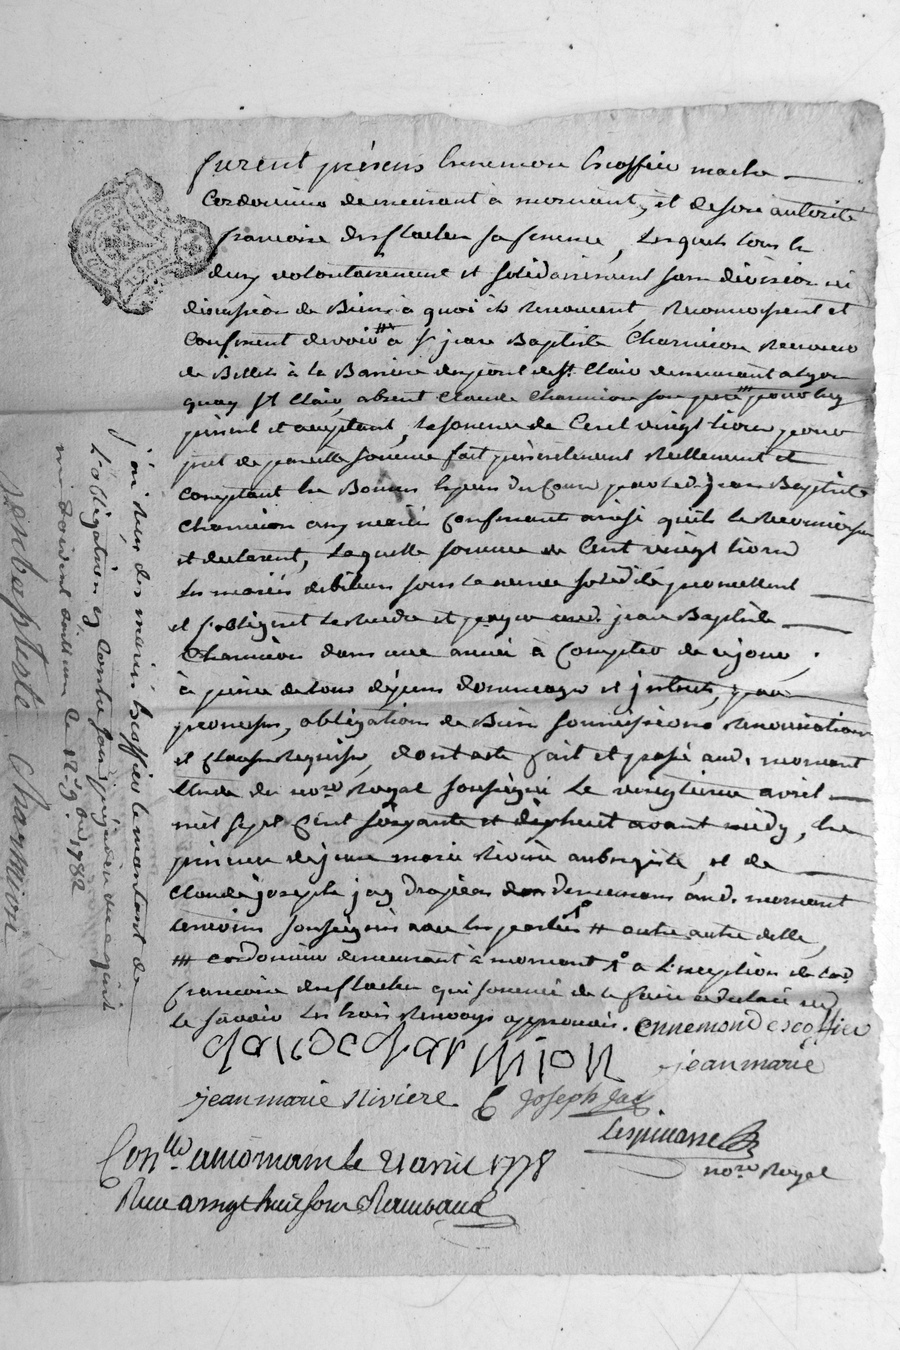 furent présens Ennemon Escoffier maitre
Cordonnier demeurant à mornant, et de son autorité
francoise desflaches sa femme, Lesquels tous les
deux volontairement et solidairement sans division ni
discussion de Biens à quoi ils renoncent, Reconnoissent et
Confessent devoir # à Sr jean Baptiste Charmion Receveur
de Billets à la Barriere du pont de St Clair demeurant a Lyon
quay St Clair, absent Claude Charmion son pere ### pour luy
présent et acceptant, la somme de Cent vingt livres pour
pret de pareille somme fait présentement Réellement et
comptant En Bonnes Especes du Cours par led. jean Baptiste
Charmion auxd. mariés Confessant ainsi qu'ils le reconnoissent
et declarent, Laquelle somme de Cent vingt livres
Les mariés debiteurs sous la meme solidité promettent
et s'obligent de Rendre et payer aud. jean Baptiste
Charmion dans une année à Compter de ce jour,
à peine de tous dépens dommages et interets, par
promesses, obligations de Biens soumissions renonciations
et Clauses Requises, dont acte fait et passé aud. mornant
Etude du nore Royal soussigné Le vingtieme avril
mil sept Cent soixante et dixhuit avant midy, En
présence de jean marie Riviere aubergiste, et de
Claude joseph jay drapier demeurans aud. mornant
temoins soussignés avec les parties 1° # autre autre delle,
### cordonnier demeurant à mornant 1° a L'exception de lad
francoise desflaches qui sommée de le faire a declaré ne
le savoir Les trois Renvoys approuvés. Ennemond escoffier
claudecharmion jean marie
jean marie Riviere C joseph Jay
Lespinasse
nore Royal
Conllé a mornant le 21 avril 1778
Reçu vingt huit sous Rambaud
j'ai reçu des mariés Escoffier le montant de
L'obligation cy Contre
1782
Jenbaptiste Charmion